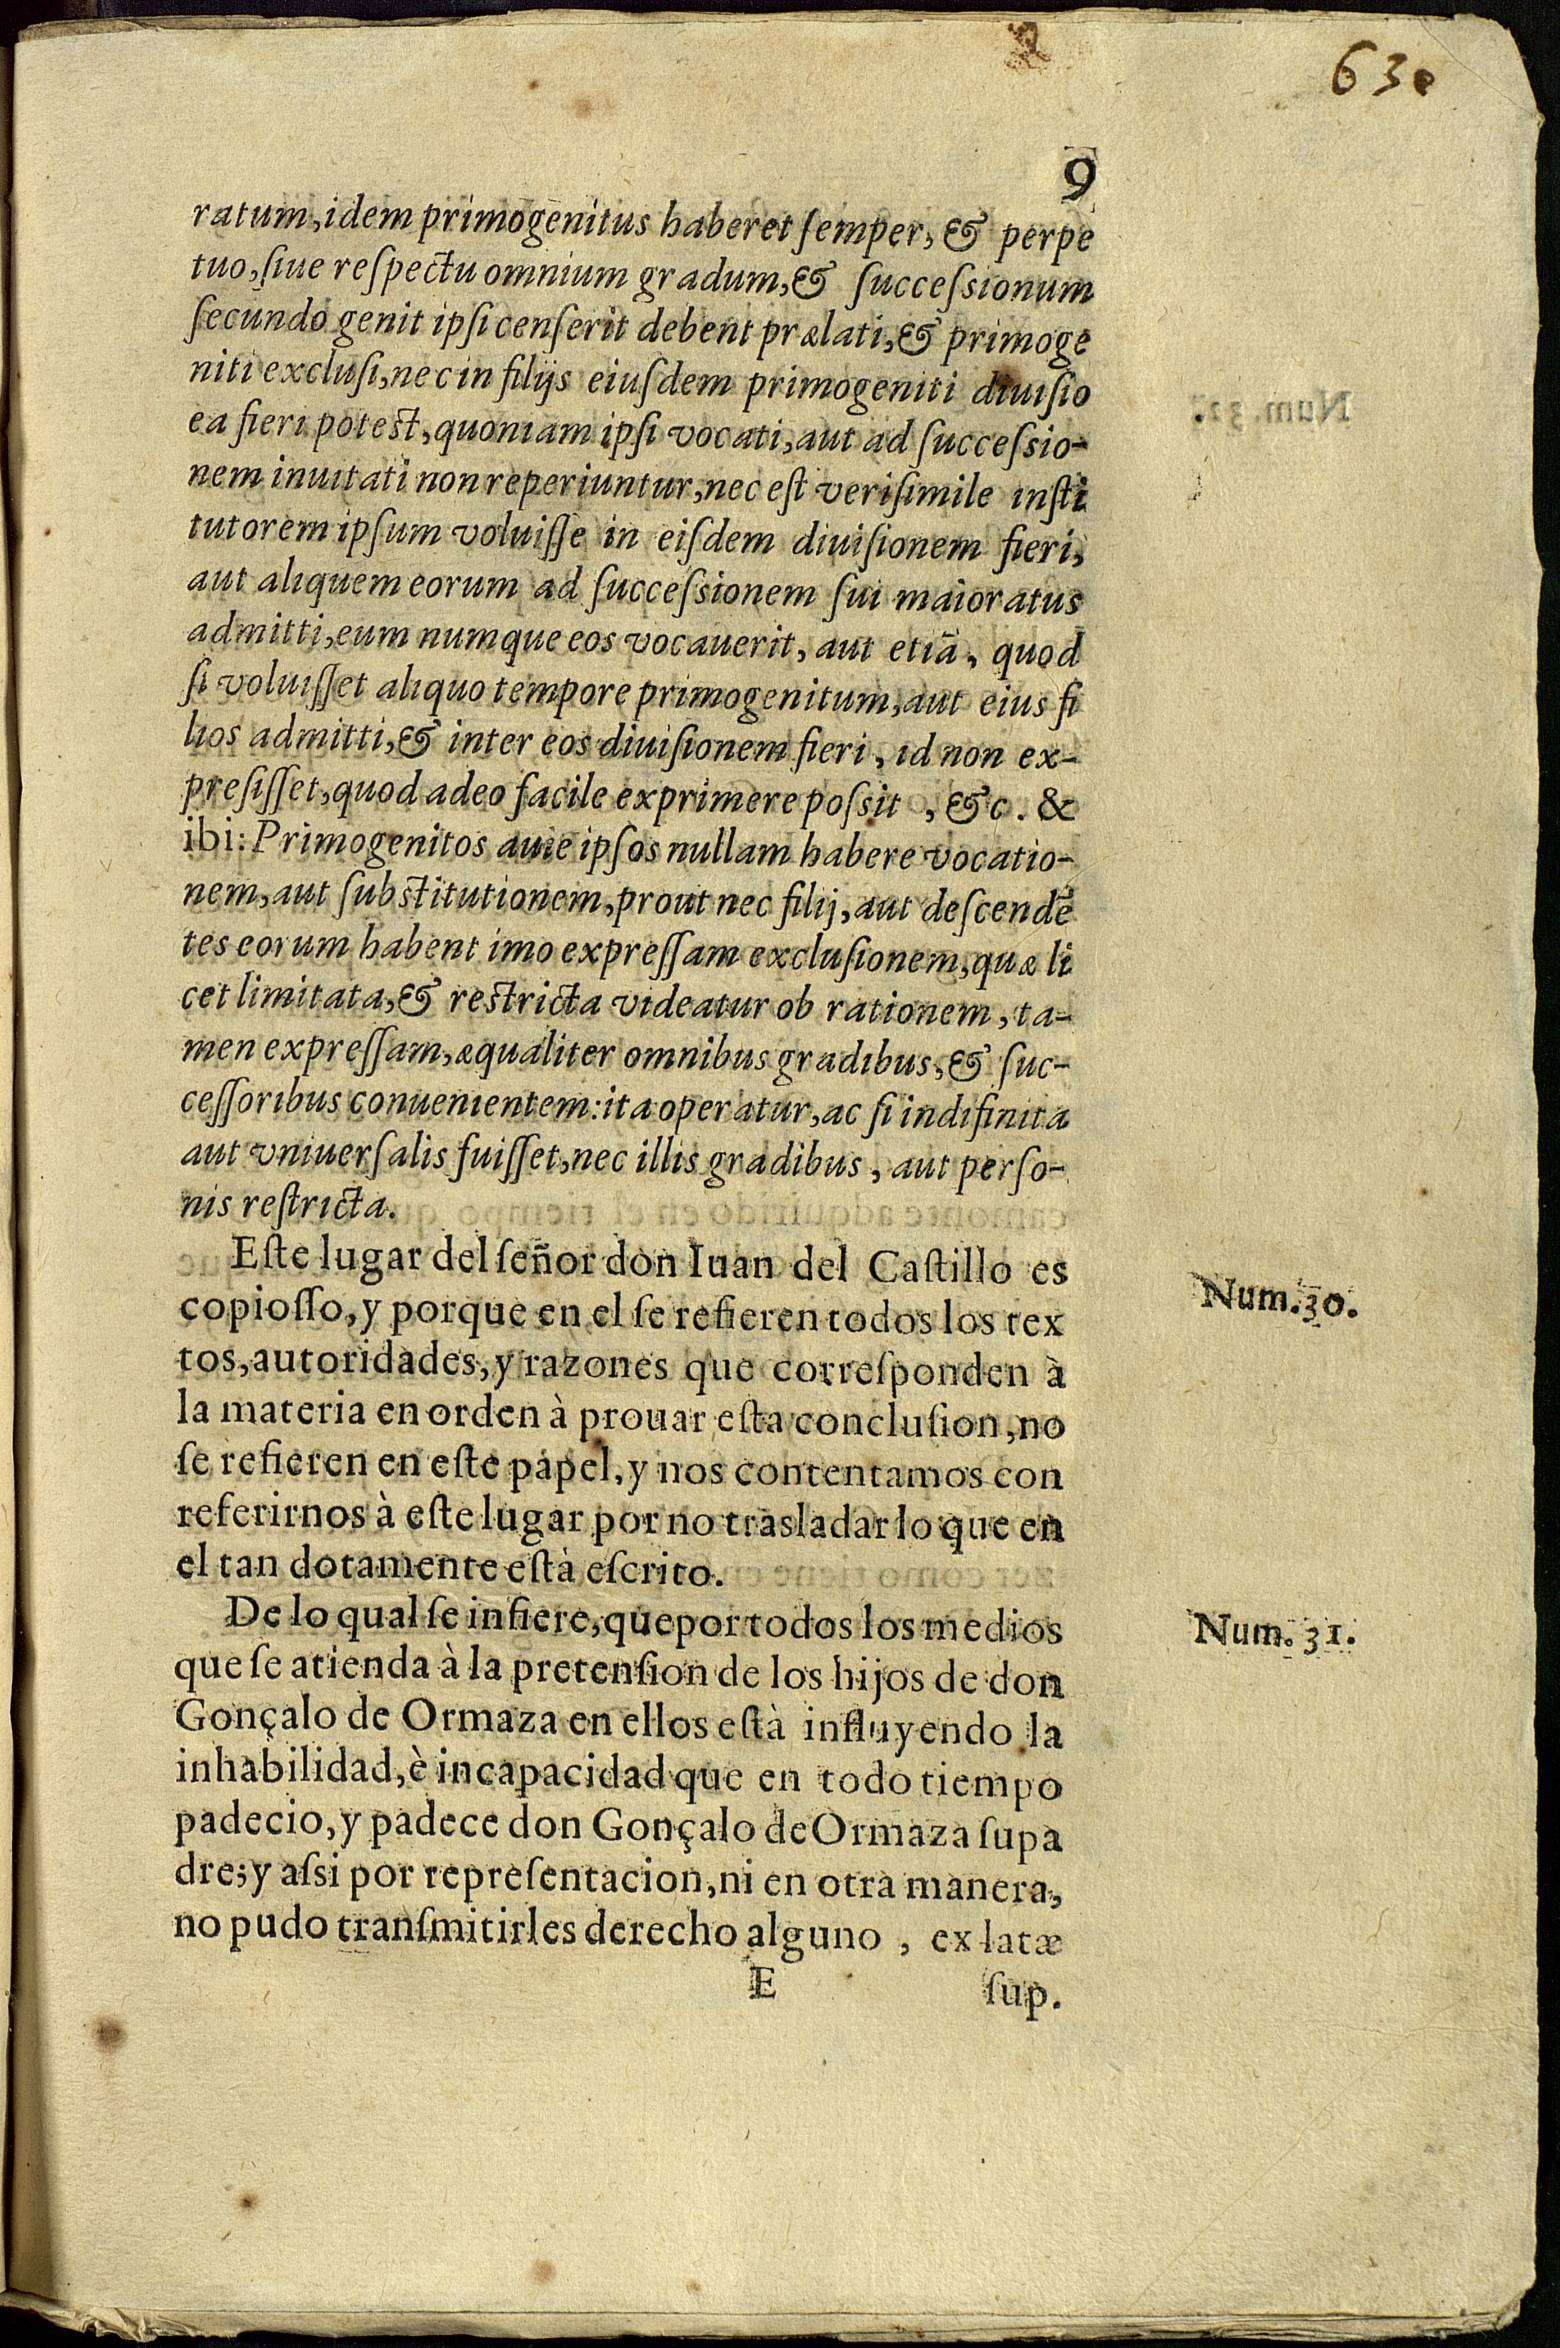 630
9
ratum, idem primogenitus haberet ſemper, & perpe
tuo, ſiue reſpectu omnium gradum, & ſucceſsionum
ſecundo genit ipſi cenſerit debent prælati, & primoge
niti excluſi, nec in filijs eiuſdem primogeniti diuiſio
ea fieri potest, quoniam ipſi vocati, aut ad ſucceſsio-
nem inuitati non reperiuntur, nec eſt veriſimile inſti
tutorem ipſum voluiſſe in eiſdem diuiſionem fieri,
aut aliquem eorum ad ſucceſsionem ſui maioratus
admitti, eum numque eos vocauerit, aut etiã, quod
ſi voluiſſet aliquo tempore primogenitum, aut eius fi
lios admitti, & inter eos diuiſionem fieri, id non ex-
preſiſſet, quod adeo facile exprimere poſsit, &c. &
ibi: Primogenitos auie ipſos nullam habere vocatio-
nem, aut ſubstitutionem, prout nec filij, aut deſcendẽ
tes eorum habent imo expreſſam excluſionem, quæ li
cet limitata, & restricta videatur ob rationem, ta-
men expreſſam, æqualiter omnibus gradibus, & ſuc-
ceſſoribus conuenientem: ita operatur, ac ſi indifinita
aut vniuerſalis fuiſſet, nec illis gradibus, aut perſo-
nis reſtricta.
Eſte lugar del ſeñor don Iuan del Caſtillo es
Num. 30.
copioſſo, y porque en el ſe refieren todos los tex
tos, autoridades, y razones que correſponden à
la materia en orden à prouar eſta concluſion, no
ſe refieren en eſte papel, y nos contentamos con
referirnos à eſte lugar por no trasladar lo que en
el tan dotamente eſtà eſcrito.
De lo qual ſe infiere, que por todos los medios
Num. 31.
que ſe atienda à la pretenſion de los hijos de don
Gonçalo de Ormaza en ellos eſtà influyendo la
inhabilidad, è incapacidad que en todo tiempo
padecio, y padece don Gonçalo de Ormaza ſu pa
dre; y aſsi por repreſentacion, ni en otra manera,
no pudo tranſmitirles derecho alguno, ex latæ
E
ſup.